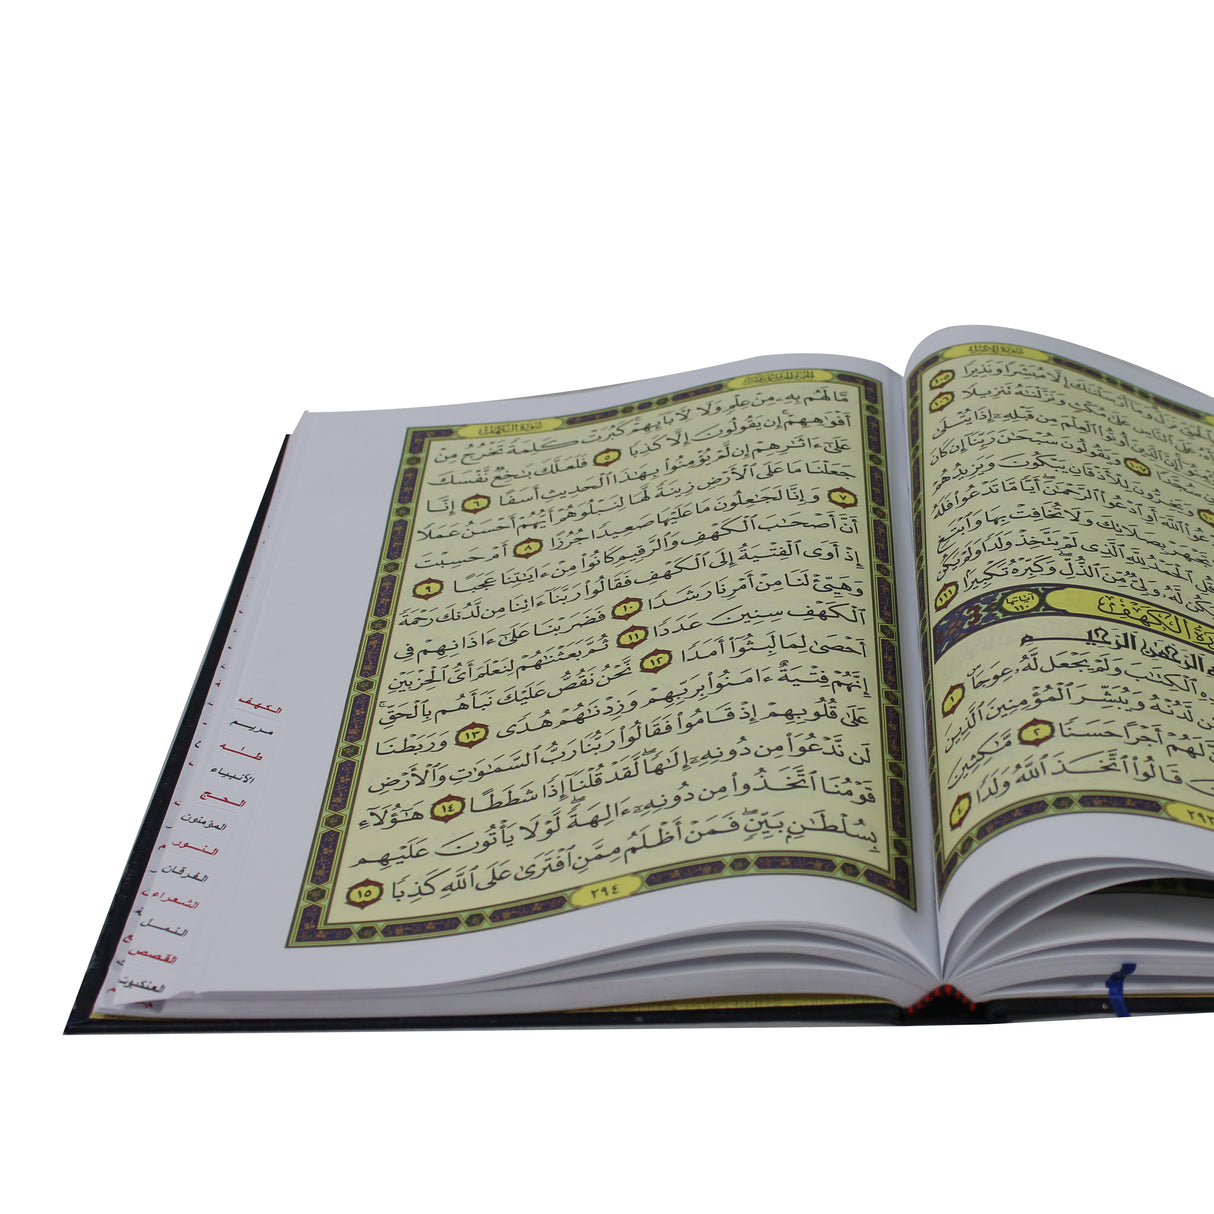 سورة الإسراء
إِلَّا مُبَشِّرًا وَنَذِيرًا ١٠٥
عَلَى ٱلنَّاسِ عَلَىٰ مُكْثٍ وَنَزَّلْنَٰهُ تَنزِيلًا ١٠٦
إِنَّ ٱلَّذِينَ أُوتُوا۟ ٱلْعِلْمَ مِن قَبْلِهِۦٓ إِذَا يُتْلَىٰ
سُجَّدًا ١٠٧ وَيَقُولُونَ سُبْحَٰنَ رَبِّنَآ إِن كَانَ
لِلْأَذْقَانِ يَبْكُونَ وَيَزِيدُهُمْ
ٱللَّهَ أَوِ ٱدْعُوا۟ ٱلرَّحْمَٰنَ أَيًّا مَّا تَدْعُوا۟ فَلَهُ
تَجْهَرْ بِصَلَاتِكَ وَلَا تُخَافِتْ بِهَا وَٱبْتَغِ
ٱلْحَمْدُ لِلَّهِ ٱلَّذِى لَمْ يَتَّخِذْ وَلَدًا وَلَمْ يَكُن
لَّهُۥ وَلِىٌّ مِّنَ ٱلذُّلِّ وَكَبِّرْهُ تَكْبِيرًۢا ١١١
ٱلْكَهْف آياتها ١١٠
ٱلرَّحْمَٰنِ ٱلرَّحِيمِ
ٱلْكِتَٰبَ وَلَمْ يَجْعَل لَّهُۥ عِوَجَا ١
لَّدُنْهُ وَيُبَشِّرَ ٱلْمُؤْمِنِينَ ٱلَّذِينَ
لَهُمْ أَجْرًا حَسَنًا ٢ مَّٰكِثِينَ
قَالُوا۟ ٱتَّخَذَ ٱللَّهُ وَلَدًا ٤
٢٩٣
سورة الكهف
مَّا لَهُم بِهِۦ مِنْ عِلْمٍ وَلَا لِـَٔابَآئِهِمْ كَبُرَتْ كَلِمَةً تَخْرُجُ مِنْ
أَفْوَٰهِهِمْ إِن يَقُولُونَ إِلَّا كَذِبًا ٥ فَلَعَلَّكَ بَٰخِعٌ نَّفْسَكَ
عَلَىٰٓ ءَاثَٰرِهِمْ إِن لَّمْ يُؤْمِنُوا۟ بِهَٰذَا ٱلْحَدِيثِ أَسَفًا ٦ إِنَّا
جَعَلْنَا مَا عَلَى ٱلْأَرْضِ زِينَةً لَّهَا لِنَبْلُوَهُمْ أَيُّهُمْ أَحْسَنُ عَمَلًا
٧ وَإِنَّا لَجَٰعِلُونَ مَا عَلَيْهَا صَعِيدًا جُرُزًا ٨ أَمْ حَسِبْتَ
أَنَّ أَصْحَٰبَ ٱلْكَهْفِ وَٱلرَّقِيمِ كَانُوا۟ مِنْ ءَايَٰتِنَا عَجَبًا ٩
إِذْ أَوَى ٱلْفِتْيَةُ إِلَى ٱلْكَهْفِ فَقَالُوا۟ رَبَّنَآ ءَاتِنَا مِن لَّدُنكَ رَحْمَةً
وَهَيِّئْ لَنَا مِنْ أَمْرِنَا رَشَدًا ١٠ فَضَرَبْنَا عَلَىٰٓ ءَاذَانِهِمْ فِى
ٱلْكَهْفِ سِنِينَ عَدَدًا ١١ ثُمَّ بَعَثْنَٰهُمْ لِنَعْلَمَ أَىُّ ٱلْحِزْبَيْنِ
أَحْصَىٰ لِمَا لَبِثُوٓا۟ أَمَدًا ١٢ نَّحْنُ نَقُصُّ عَلَيْكَ نَبَأَهُم بِٱلْحَقِّ
إِنَّهُمْ فِتْيَةٌ ءَامَنُوا۟ بِرَبِّهِمْ وَزِدْنَٰهُمْ هُدًى ١٣ وَرَبَطْنَا
عَلَىٰ قُلُوبِهِمْ إِذْ قَامُوا۟ فَقَالُوا۟ رَبُّنَا رَبُّ ٱلسَّمَٰوَٰتِ وَٱلْأَرْضِ
لَن نَّدْعُوَا۟ مِن دُونِهِۦٓ إِلَٰهًا لَّقَدْ قُلْنَآ إِذًا شَطَطًا ١٤ هَٰٓؤُلَآءِ
قَوْمُنَا ٱتَّخَذُوا۟ مِن دُونِهِۦٓ ءَالِهَةً لَّوْلَا يَأْتُونَ عَلَيْهِم
بِسُلْطَٰنٍۭ بَيِّنٍ فَمَنْ أَظْلَمُ مِمَّنِ ٱفْتَرَىٰ عَلَى ٱللَّهِ كَذِبًا ١٥
٢٩٤
الكهف
مريم
طه
الأنبياء
الحج
المؤمنون
النور
الفرقان
الشعراء
النمل
القصص
العنكبوت